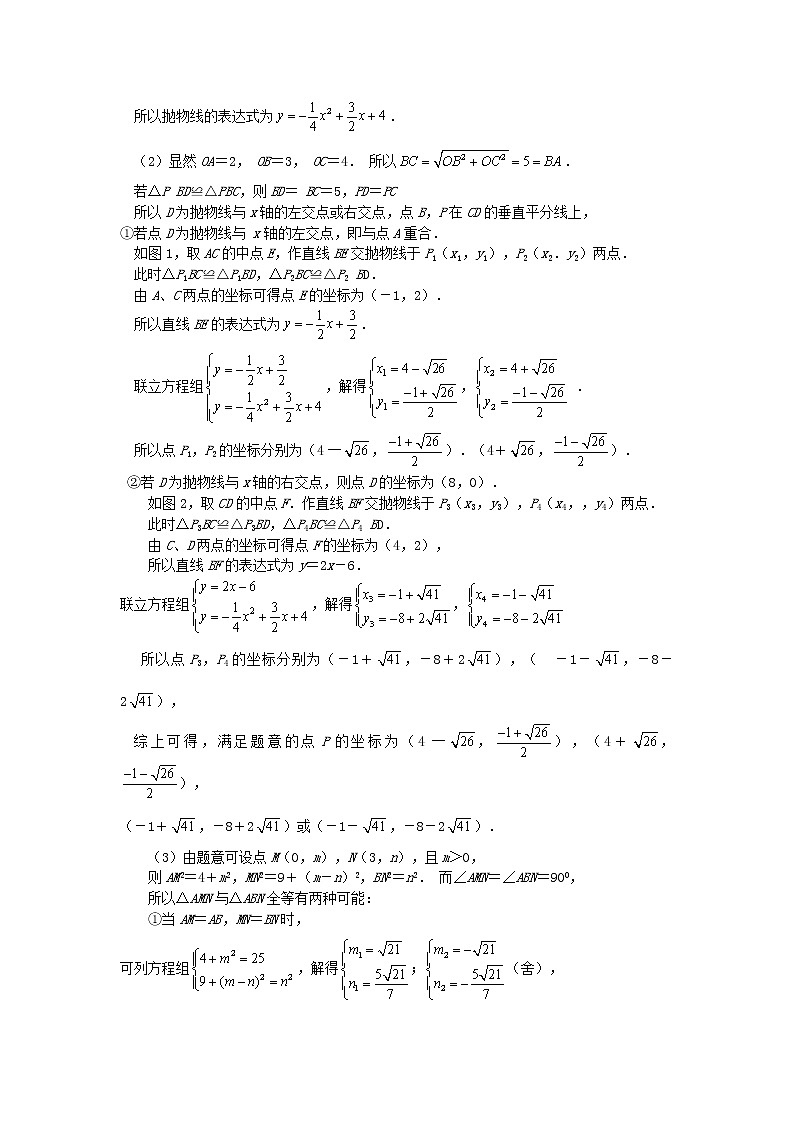 所以抛物线的表达式为 y = -\frac{1}{4}x^2 + \frac{3}{2}x + 4.
(2)显然 OA=2, OB=3, OC=4. 所以 BC = \sqrt{OB^2 + OC^2} = 5 = BA.
若△P BD≌△PBC,则 BD= BC=5,PD=PC
所以 D 为抛物线与 x 轴的左交点或右交点,点 B,P 在 CD 的垂直平分线上,
①若点 D 为抛物线与 x 轴的左交点,即与点 A 重合.
如图 1,取 AC 的中点 E,作直线 BE 交抛物线于 P₁(x₁,y₁),P₂(x₂.y₂)两点.
此时△P₁BC≌△P₁BD,△P₂BC≌△P₂ BD.
由 A、C 两点的坐标可得点 E 的坐标为(-1,2).
所以直线 BE 的表达式为 y = -\frac{1}{2}x + \frac{3}{2}.
联立方程组 \begin{cases} y = -\frac{1}{2}x + \frac{3}{2} \\ y = -\frac{1}{4}x^2 + \frac{3}{2}x + 4 \end{cases},解得 \begin{cases} x_1 = 4 - \sqrt{26} \\ y_1 = \frac{-1+\sqrt{26}}{2} \end{cases}, \begin{cases} x_2 = 4 + \sqrt{26} \\ y_2 = \frac{-1-\sqrt{26}}{2} \end{cases}.
所以点 P₁,P₂ 的坐标分别为(4一\sqrt{26},\frac{-1+\sqrt{26}}{2}).(4+\sqrt{26},\frac{-1-\sqrt{26}}{2}).
②若 D 为抛物线与 x 轴的右交点,则点 D 的坐标为(8,0).
如图 2,取 CD 的中点 F.作直线 BF 交抛物线于 P₃(x₃,y₃),P₄(x₄,,y₄)两点.
此时△P₃BC≌△P₃BD,△P₄BC≌△P₄ BD.
由 C、D 两点的坐标可得点 F 的坐标为(4,2),
所以直线 BF 的表达式为 y=2x-6.
联立方程组 \begin{cases} y = 2x - 6 \\ y = -\frac{1}{4}x^2 + \frac{3}{2}x + 4 \end{cases},解得 \begin{cases} x_3 = -1 + \sqrt{41} \\ y_3 = -8 + 2\sqrt{41} \end{cases}, \begin{cases} x_4 = -1 - \sqrt{41} \\ y_4 = -8 - 2\sqrt{41} \end{cases}
所以点 P₃,P₄ 的坐标分别为(-1+\sqrt{41},-8+2\sqrt{41}),( -1-\sqrt{41},-8-
2\sqrt{41}),
综上可得,满足题意的点 P 的坐标为(4一\sqrt{26},\frac{-1+\sqrt{26}}{2}),(4+\sqrt{26},
\frac{-1-\sqrt{26}}{2}),
(-1+\sqrt{41},-8+2\sqrt{41})或(-1-\sqrt{41},-8-2\sqrt{41}).
(3)由题意可设点 M(0,m),N(3,n),且 m>0,
则 AM²=4+m²,MN²=9+(m-n)²,BN²=n². 而∠AMN=∠ABN=90⁰,
所以△AMN 与△ABN 全等有两种可能:
①当 AM=AB,MN=BN 时,
可列方程组 \begin{cases} 4 + m^2 = 25 \\ 9 + (m-n)^2 = n^2 \end{cases},解得 \begin{cases} m_1 = \sqrt{21} \\ n_1 = \frac{5\sqrt{21}}{7} \end{cases}; \begin{cases} m_2 = -\sqrt{21} \\ n_2 = -\frac{5\sqrt{21}}{7} \end{cases}(舍),